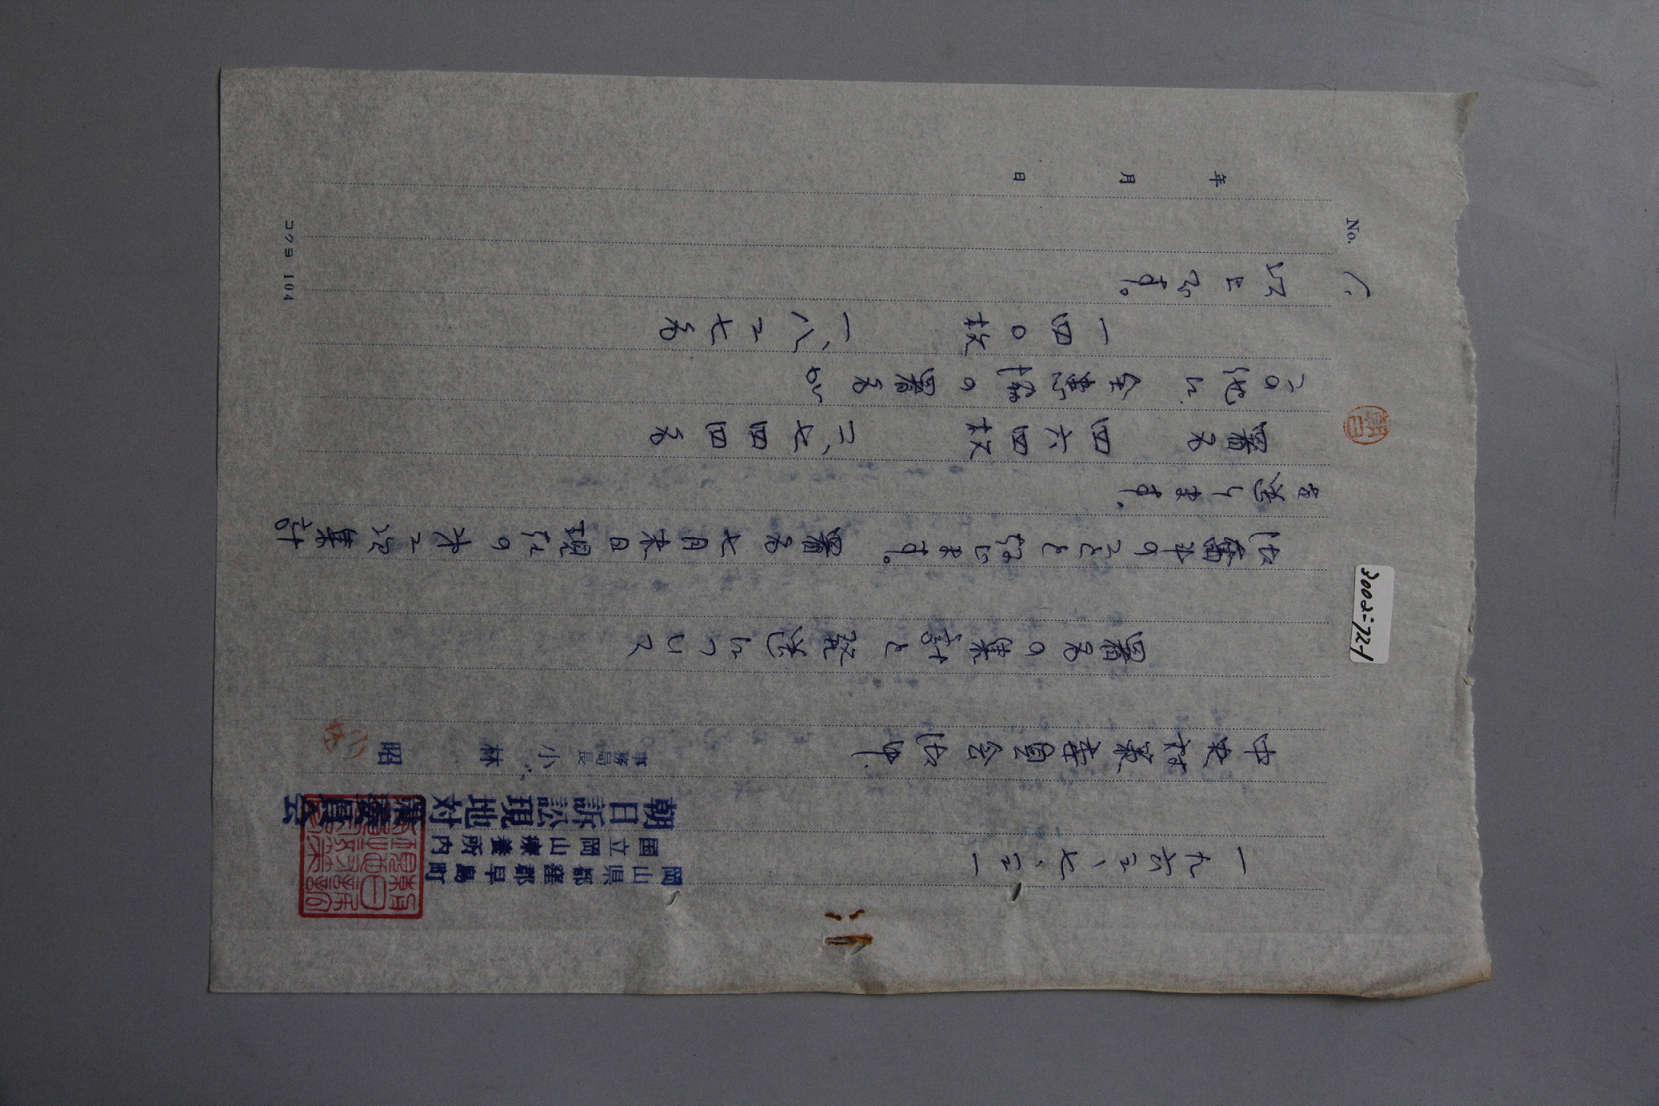 一九六三、七、三一
岡山県都窪郡早島町
国立岡山療養所内
朝日訴訟現地対策委員会
事務局長 小林 昭
中央対策委員会御中
署名の集計と発送について
御奮斗のことと存じます。署名七月末日現在の才二次集計
を送ります。
署名 四六四枚 三、七四四名
この他に 全患協の署名が
一四〇枚 一、八三七名
以上です。
No. 1.
年 月 日
コクヨ 104
朝日
3002-72-1